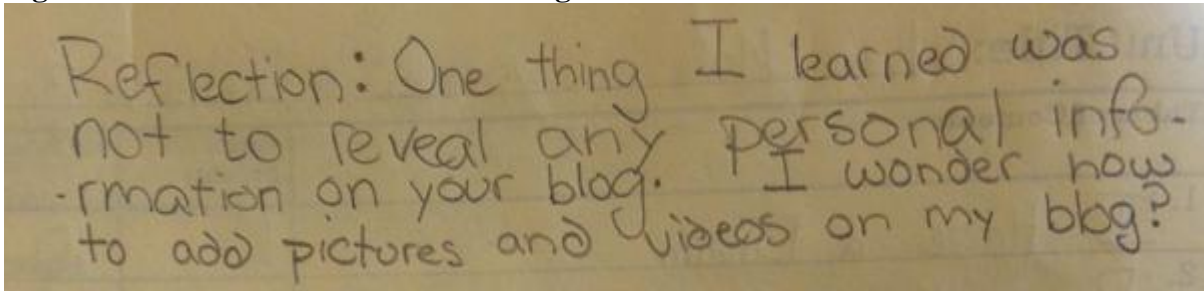 Reflection: One thing I learned was
not to reveal any personal info-
-rmation on your blog. I wonder how
to add pictures and videos on my blog?